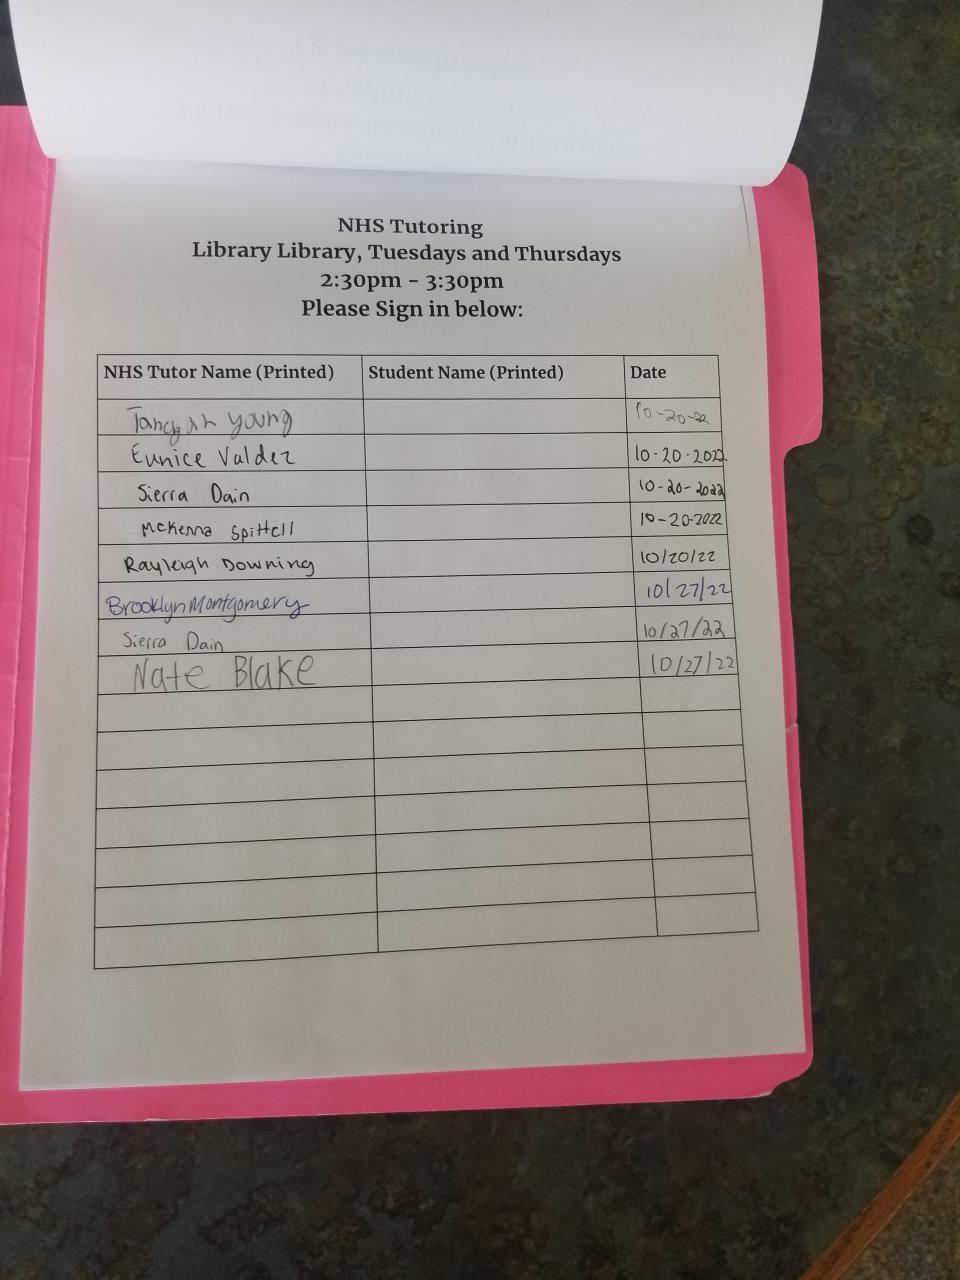 NHS Tutoring
Library Library, Tuesdays and Thursdays
2:30pm - 3:30pm
Please Sign in below:
NHS Tutor Name (Printed) Student Name (Printed) Date
Young 10-20-22
Eunice Valdez 10-20-2022
Sierra Dain 10-20-2022
McKenna Spittell 10-20-2022
Rayleigh Downing 10/20/22
Brooklyn Montgomery 10/27/22
Sierra Dain 10/27/22
Nate Blake 10/27/22